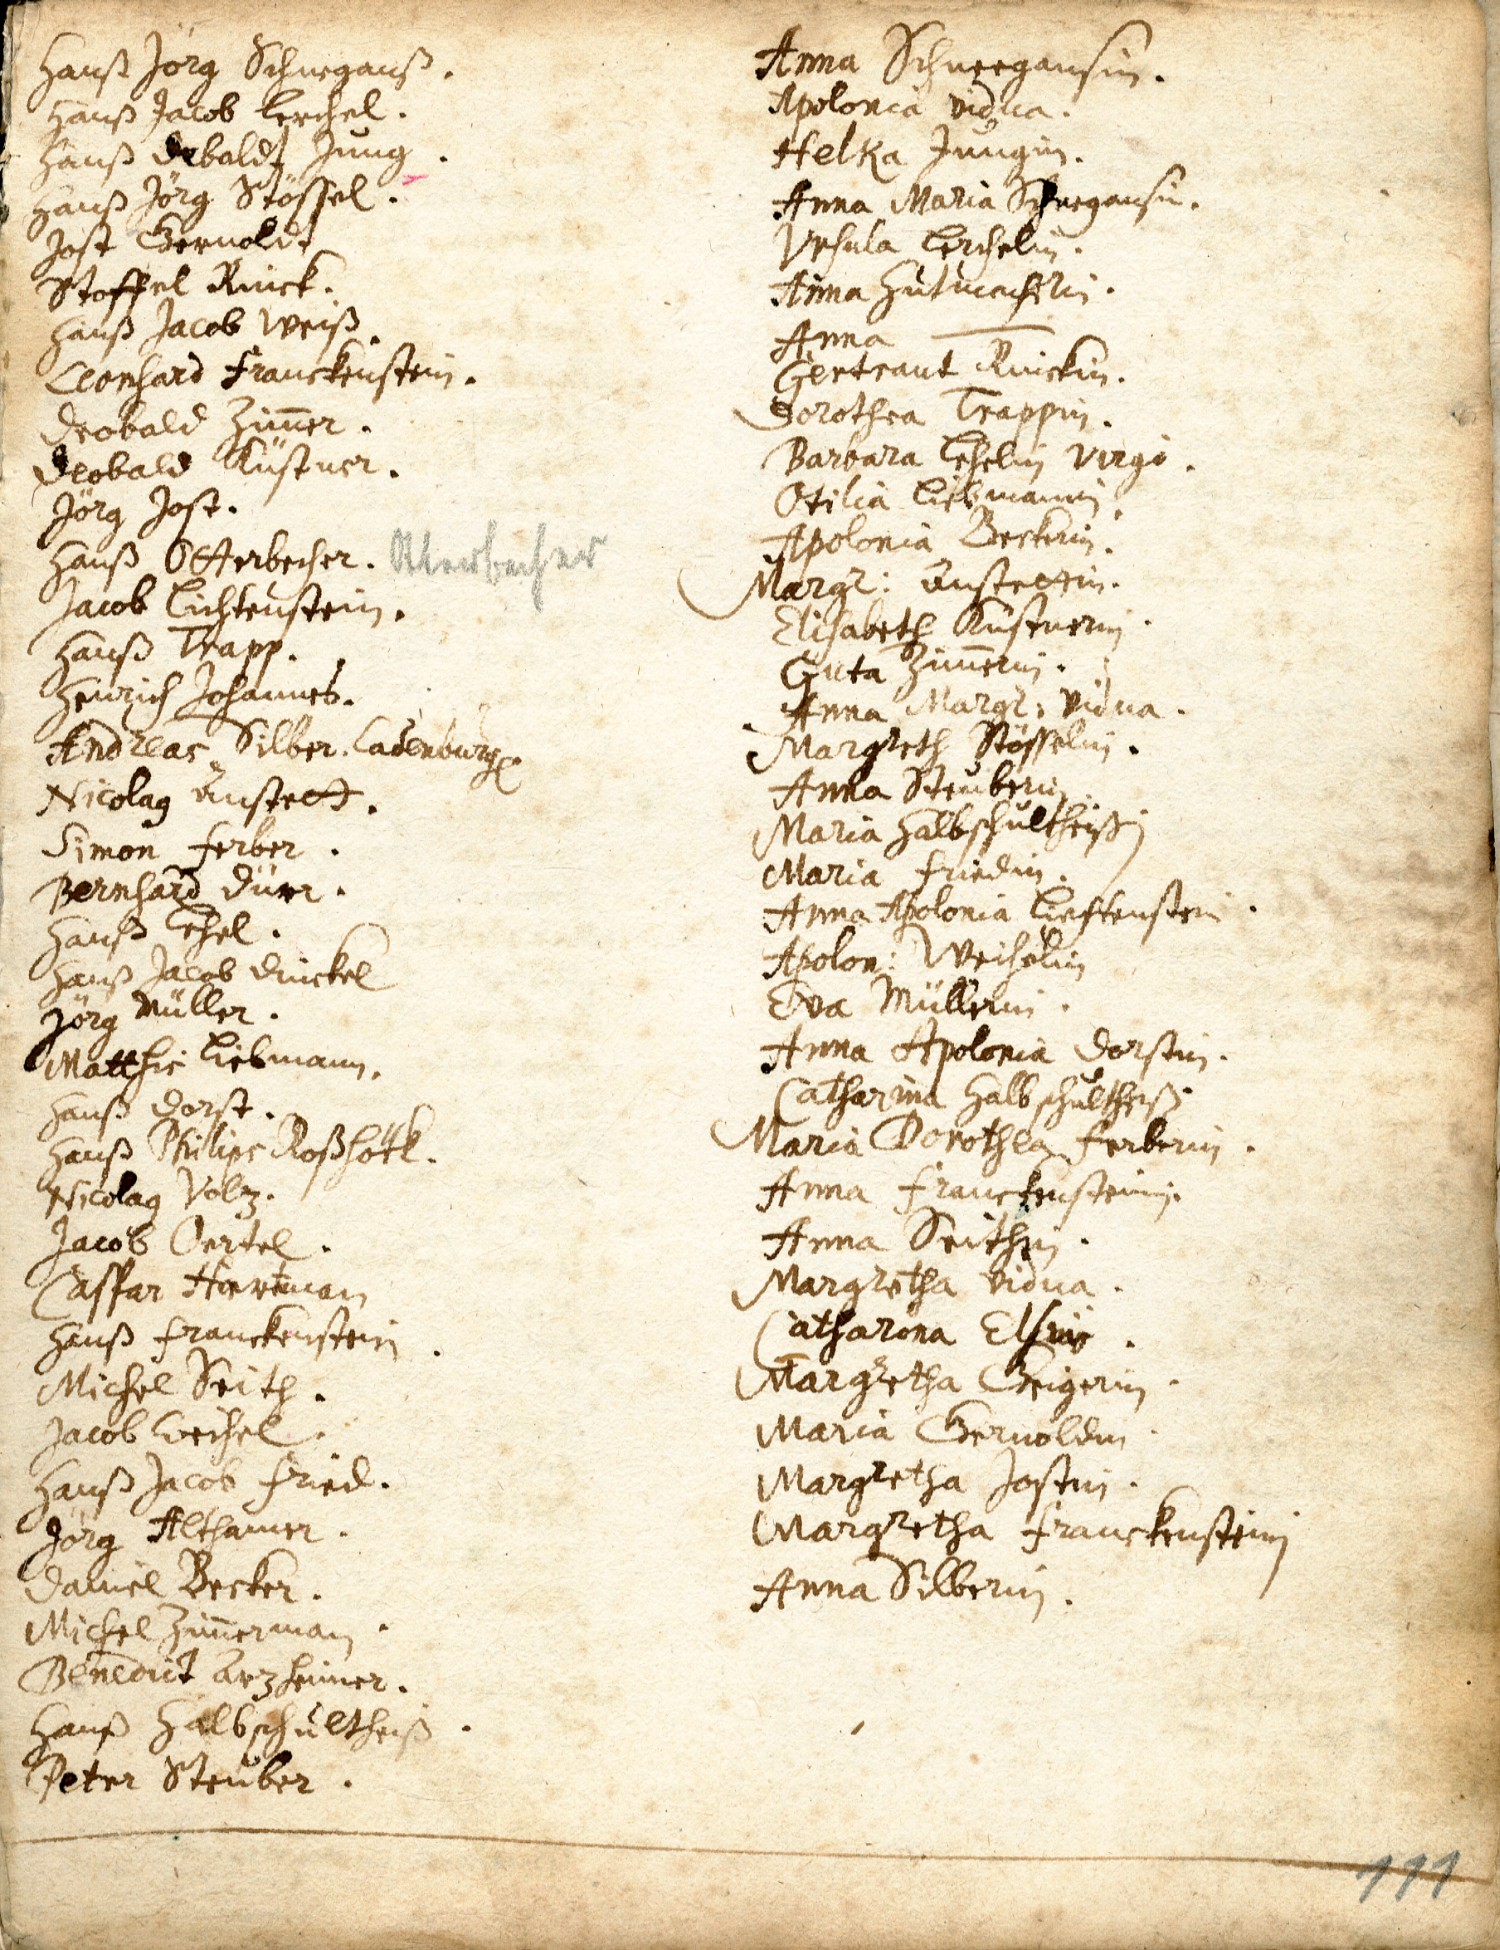 Hanß Jörg Schneeganß.
Hanß Jacob Lerchel.
Hanß Debaldt Jung.
Hanß Jörg Stössel.
Jost Gernoldt
Stoffel Rinck.
Hanß Jacob Weiß.
Leonhard Franckenstein.
Deobald Zim̄er.
Deobald Küstner.
Jörg Jost.
Hanß Otterbecher. Otterbecher
Jacob Lichtenstein.
Hanß Trapp.
Heinrich Johannes.
Andreas Silber. Ladenburg
Nicolag Anstett.
Simon Ferber.
Bernhard Dürr.
Hanß Lehel.
Hanß Jacob Dinckel
Jörg Müller.
Matthis Liebmann.
Hanß Dorst.
Hanß Philips
Nicolag Voltz.
Jacob Oertel.
Caspar Hartman
Hanß Franckenstein.
Michel Seith.
Jacob
Hanß Jacob Fried.
Jörg Althamer.
Daniel Becker.
Michel Zim̄erman.
Benedict Arzheimer.
Hanß Halbschultheiß.
Peter Steuber.
Anna Schneegansin.
Apolonia vidua.
Helka Jungin.
Anna Maria Schneegansin.
Ursula Lerchelin.
Anna Hutmacherin.
Anna
Gertraut Rinckin.
Dorothea Trappin.
Barbara Lehelin virgo.
Otilia Liebmannin.
Apolonia Beckerin.
Margr: Anstettin.
Elisabeth Küstnerin.
Guta Zim̄erin.
Anna Margr: vidua.
Margreth Stösselin.
Anna Steuberin.
Maria Halbschultheißin
Maria Friedin.
Anna Apolonia Liechtenstein.
Apolon: Weihelin
Eva Müllerin.
Anna Apolonia Dorstin.
Catharina Halbschultheiß.
Maria Dorothea Ferberin.
Anna Franckensteinin.
Anna Seithin.
Margretha vidua.
Catharona
Margretha Geigerin.
Maria Gernoldin.
Margretha Jostin.
Margretha Franckensteinin
Anna Silberin.
111